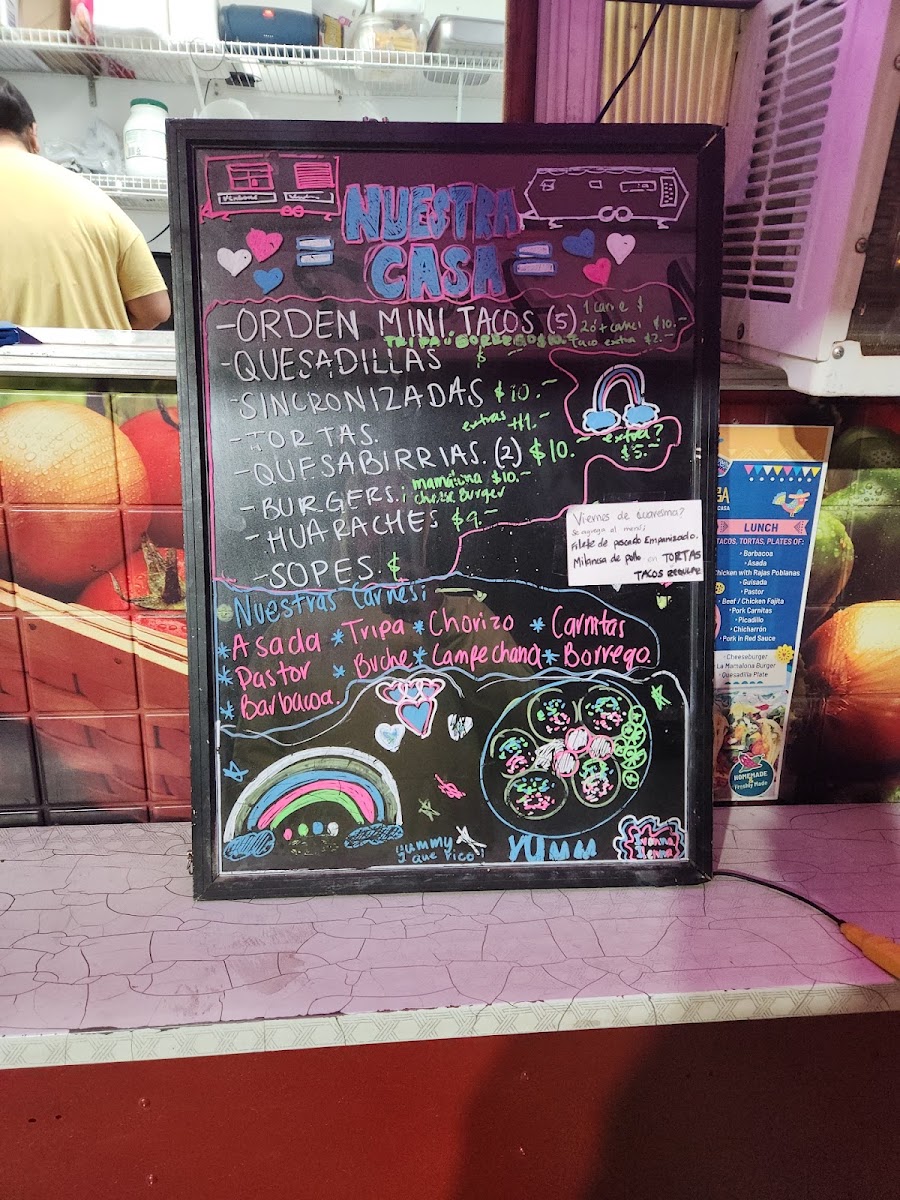 NUESTRA
CASA
-ORDEN MINI TACOS (5) 1 carne $
2 o + carnes $10.-
Taco extra $2.-
-QUESADILLAS $
-SINCRONIZADAS $10.-
extras +1.-
-TORTAS.
-QUESABIRRIAS. (2) $10.- extra?
$5.-
-BURGERS: mamalona $10.-
cheese Burger
-HUARACHES $9.-
-SOPES. $
Viernes de Cuaresma?
Se agrega al menú;
Filete de pescado Empanizado.
Milanesa de pollo en TORTAS
TACOS REGULAR
Nuestras Carnes;
* Asada * Tripa * Chorizo * Carnitas
* Pastor * Buche * Campechana * Borrego.
* Barbacoa.
yummy
! que rico!
YUMM
CASA
LUNCH
TACOS, TORTAS, PLATES OF:
• Barbacoa
• Asada
Chicken with Rajas Poblanas
• Guisada
• Pastor
• Beef / Chicken Fajita
• Pork Carnitas
• Picadillo
• Chicharrón
• Pork in Red Sauce
• Cheeseburger
La Mamalona Burger
• Quesadilla Plate
HOMEMADE
&
Freshly Made